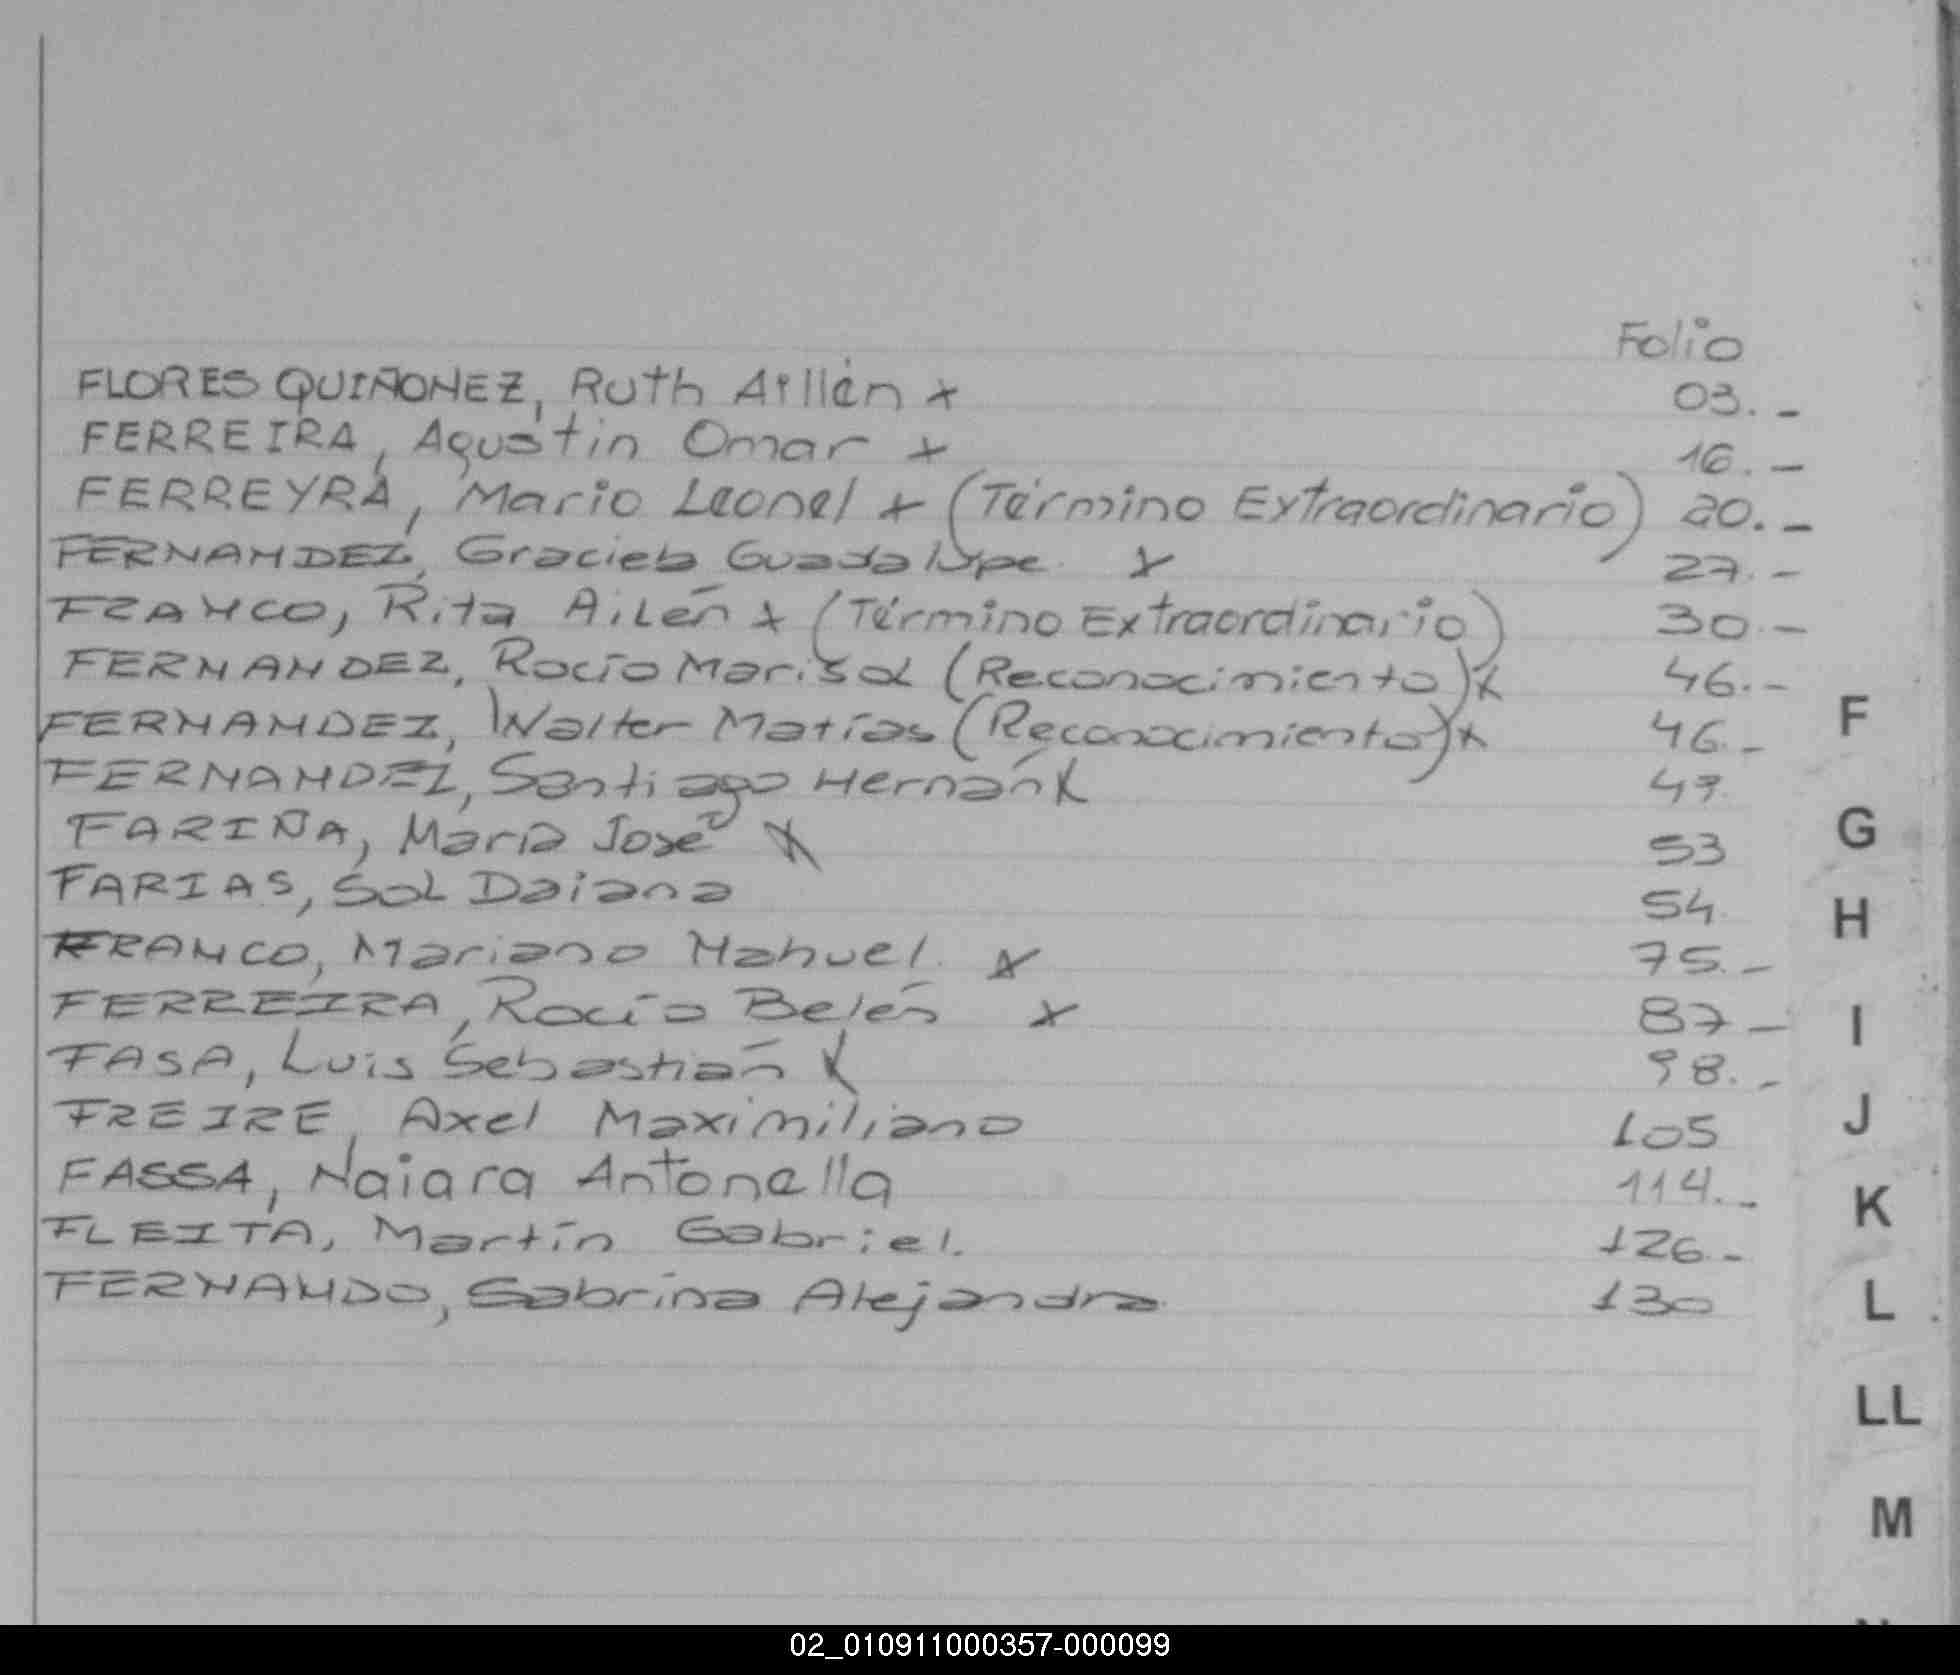 Folio
FLORES QUIÑONEZ, Ruth Aillén x 03. -
FERREIRA, Agustín Omar x 16. -
FERREYRA, Mario Leonel x (Término Extraordinario) 20. -
FERNANDEZ, Graciela Guadalupe. x 27. -
FRANCO, Rita Ailén x (Término Extraordinario) 30. -
FERNANDEZ, Rocío Marisol (Reconocimiento) x 46. -
FERNANDEZ, Walter Matías (Reconocimiento) x 46. -
FERNANDEZ, Santiago Hernán x 47.
FARIÑA, María José x 53
FARIAS, Sol Daiana 54
FRANCO, Mariano Nahuel. x 75. -
FERREIRA, Rocío Belén x 87 -
FASA, Luis Sebastián x 98. -
FREIRE, Axel Maximiliano 105
FASSA, Naiara Antonella 114. -
FLEITA, Martín Gabriel. 126. -
FERNANDO, Sabrina Alejandra 130
F
G
H
I
J
K
L
LL
M
02_010911000357-000099